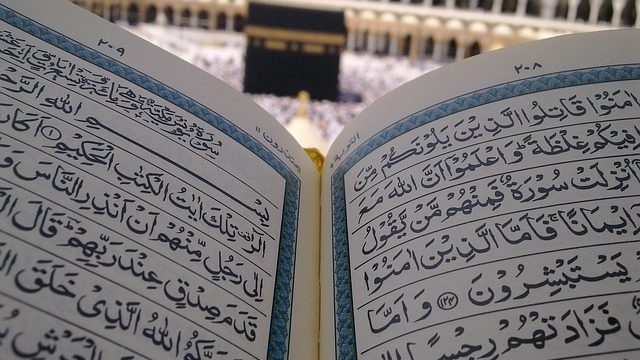 ٢٠٨
التوبة
اٰمَنُوْا قَاتِلُوا الَّذِيْنَ يَلُوْنَكُمْ مِّنَ
فِيْكُمْ غِلْظَةً ؕ وَاعْلَمُوْۤا اَنَّ اللّٰهَ مَعَ
اُنْزِلَتْ سُوْرَةٌ فَمِنْهُمْ مَّنْ يَّقُوْلُ
اِيْمَانًا ۚ فَاَمَّا الَّذِيْنَ اٰمَنُوْا
يَسْتَبْشِرُوْنَ ﴿١٢٤﴾ وَ اَمَّا
فَزَادَتْهُمْ رِجْسًا
٢٠٩
يعتذرون ١١
بِسْمِ اللّٰهِ
الٓرٰ تِلْكَ اٰيٰتُ الْكِتٰبِ الْحَكِيْمِ ﴿١﴾ اَكَانَ
اِلٰى رَجُلٍ مِّنْهُمْ اَنْ اَنْذِرِ النَّاسَ وَ
قَدَمَ صِدْقٍ عِنْدَ رَبِّهِمْ ؕ قَالَ
رَبَّكُمُ اللّٰهُ الَّذِيْ خَلَقَ
الْعَرْشِ